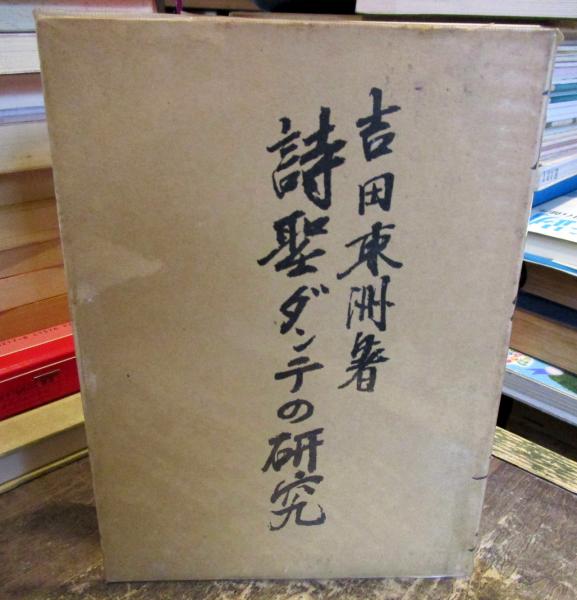 吉田東洲著
詩聖ダンテの研究